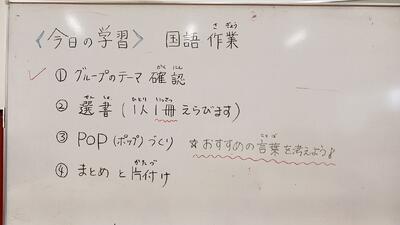 〈今日の学習〉 国語 作業
① グループのテーマ 確認
② 選書 (1人1冊 えらびます)
③ POP (ポップ) づくり ☆おすすめの言葉を考えよう!
④ まとめ と 片付け